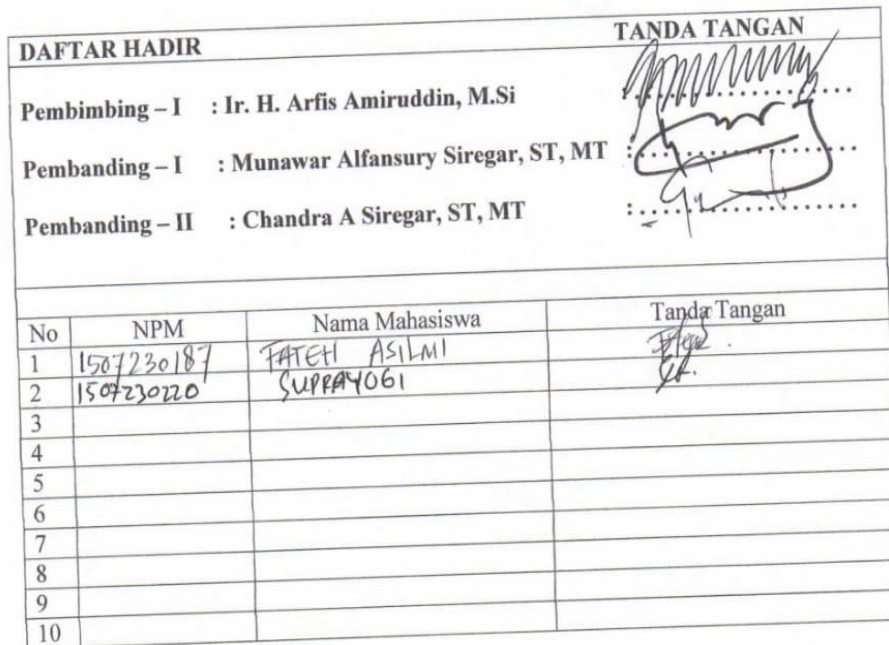 DAFTAR HADIR TANDA TANGAN
Pembimbing – I : Ir. H. Arfis Amiruddin, M.Si :..............................
Pembanding – I : Munawar Alfansury Siregar, ST, MT :..............................
Pembanding – II : Chandra A Siregar, ST, MT :..............................
No NPM Nama Mahasiswa Tanda Tangan
1 1507230187 FATEH ASILMI
2 1507230220 SUPRAYOGI
3
4
5
6
7
8
9
10